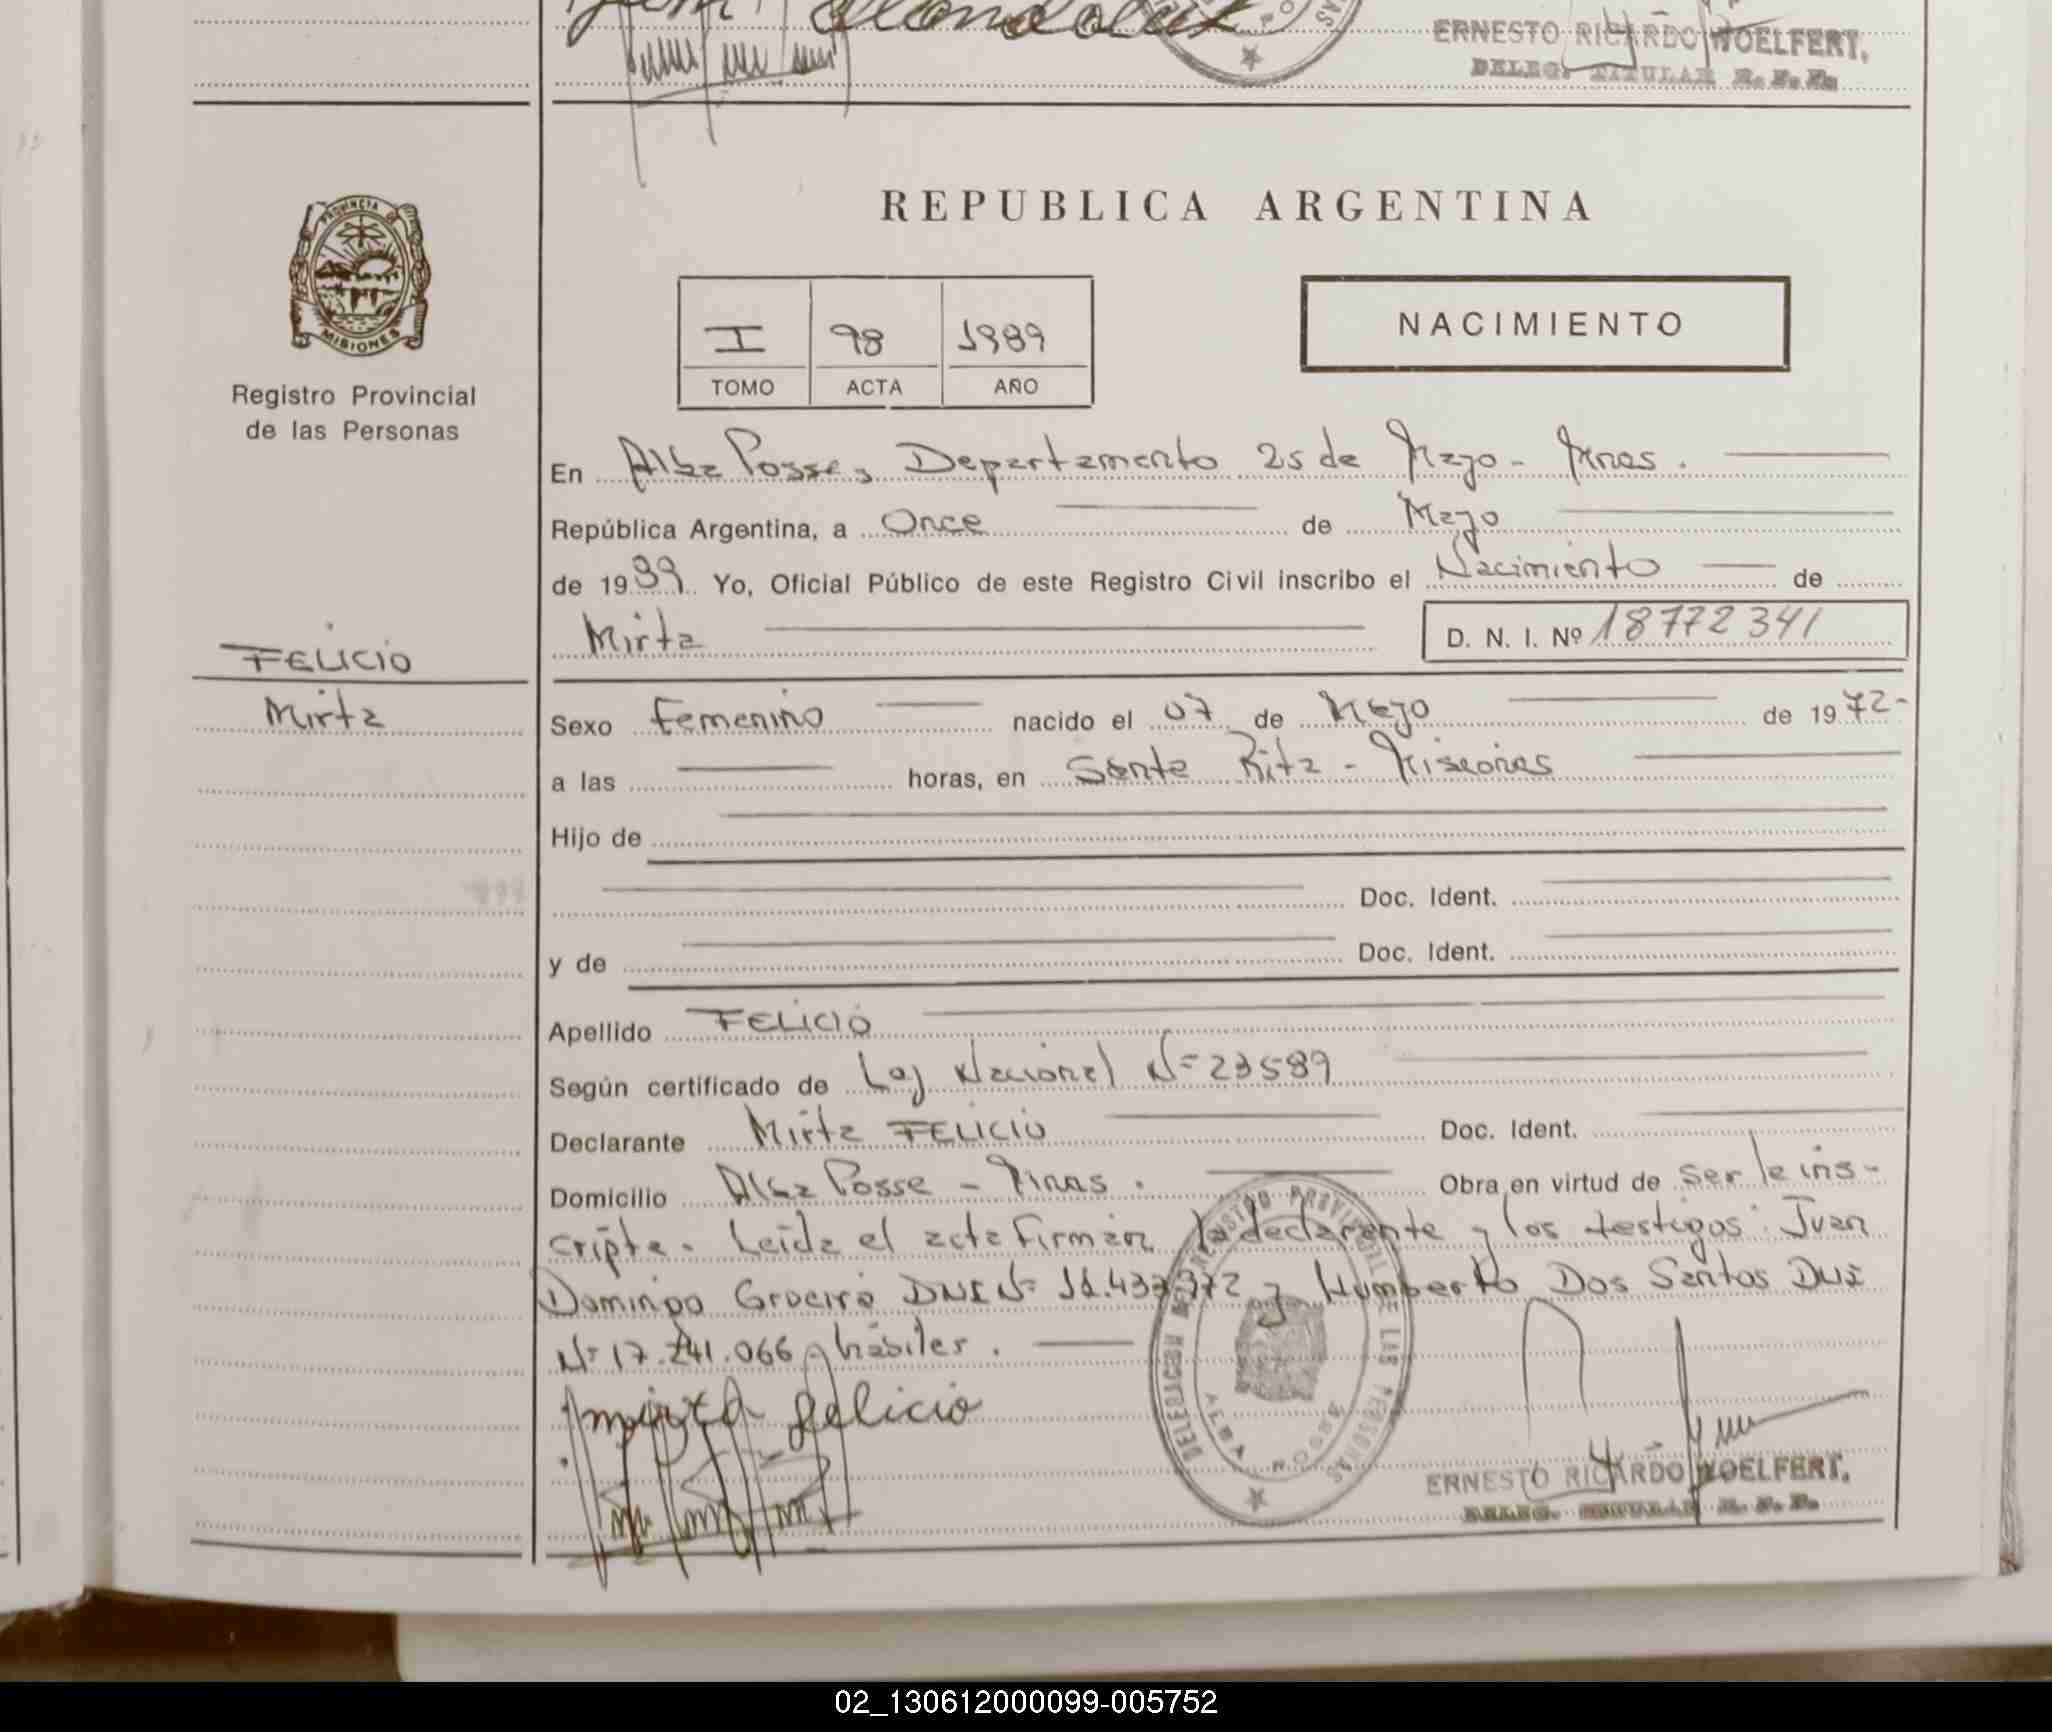 ERNESTO RICARDO WOELFERT.
DELEG. TITULAR R. P. P.
PROVINCIA DE
MISIONES
Registro Provincial
de las Personas
REPUBLICA ARGENTINA
I 98 1989
TOMO ACTA AÑO
NACIMIENTO
En Alba Posse, Departamento 25 de Mayo - Mnes.
República Argentina, a Once de Mayo
de 1989. Yo, Oficial Público de este Registro Civil inscribo el Nacimiento de
Mirta D. N. I. Nº 18772341
FELICIO
Mirta
Sexo Femenino nacido el 07 de Mayo de 1972-
a las horas, en Santa Rita - Misiones
Hijo de
Doc. Ident.
y de Doc. Ident.
Apellido FELICIO
Según certificado de Ley Nacional N= 23589
Declarante Mirta FELICIO Doc. Ident.
Domicilio Alba Posse - Mnes. Obra en virtud de ser la ins-
cripta. Leída el acta firman la declarante y los testigos: Juan
Domingo DNI N= y Humberto Dos Santos DNI
N= 17.241.066 hábiles.
mirta felicio
DELEGACION DEL REGISTRO PROVINCIAL DE LAS PERSONAS
ALBA POSSE
ERNESTO RICARDO WOELFERT.
DELEG. TITULAR R. P. P.
02_130612000099-005752